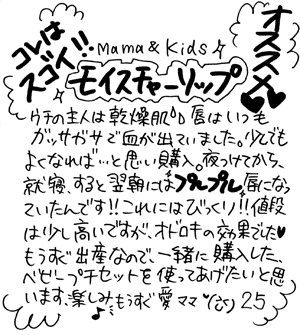 コレは
スゴイ!!
オススメ♥♥
Mama & Kids
モイスチャーリップ
ウチの主人は乾燥肌。唇はいつも
ガッサガサで血が出ていました。少しでも
よくなれば…と思い購入。夜つけてから、
就寝、すると翌朝にはプルプル唇になっ
ていたんです!!これにはびっくり!!値段
は少し高いですが、オドロキの効果でした♥
もうすぐ出産なので、一緒に購入した、
ベビープチセットを使ってあげたいと思
います。楽しみ♪もうすぐ愛ママ♥ 25